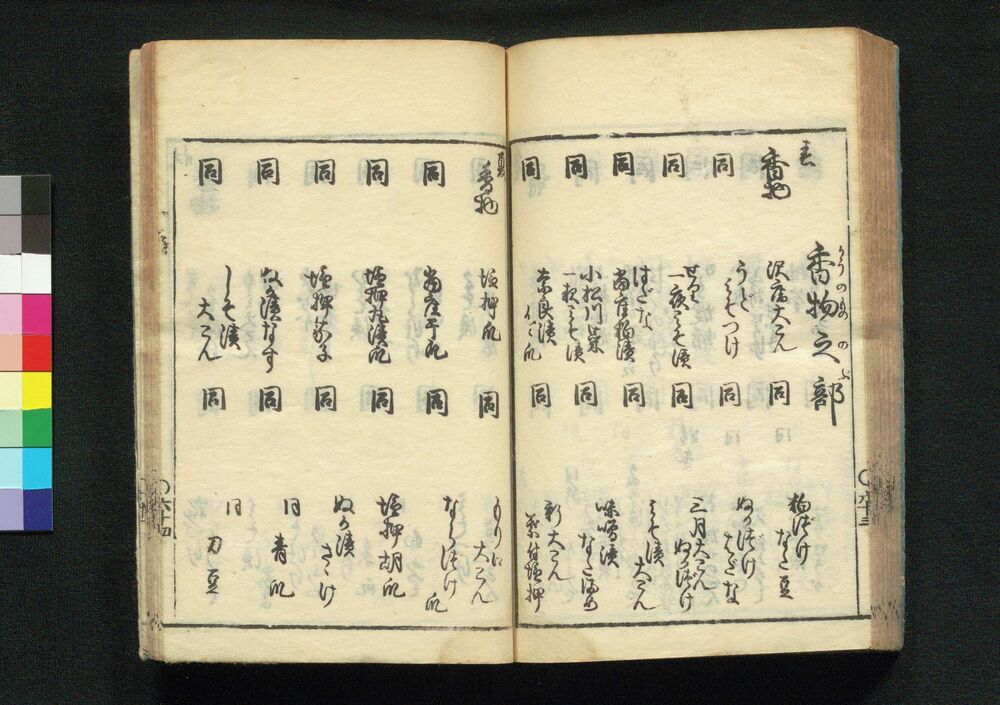 香物之部
かうのものゝぶ
春
香物
沢庵大こん
同
粕漬け
なた豆
同
うど
みそつけ
同
ぬか漬け
同
一夜みそ漬
同
三月大こん
ぬか漬け
同
当座粕漬
同
みそ漬
大こん
同
小松川菜
一夜みそ漬
同
味噌漬
同
奈良漬
同
新大こん
葉付塩押
夏
香物
塩押瓜
同
大こん
同
当座干瓜
同
なら漬け
瓜
同
塩押丸漬瓜
同
塩押胡瓜
同
塩押茄子
同
ぬか漬
さゝけ
同
ぬか漬なす
同
同
青瓜
同
しそ漬
大こん
同
同
刀豆
〇六十三
〇六十四